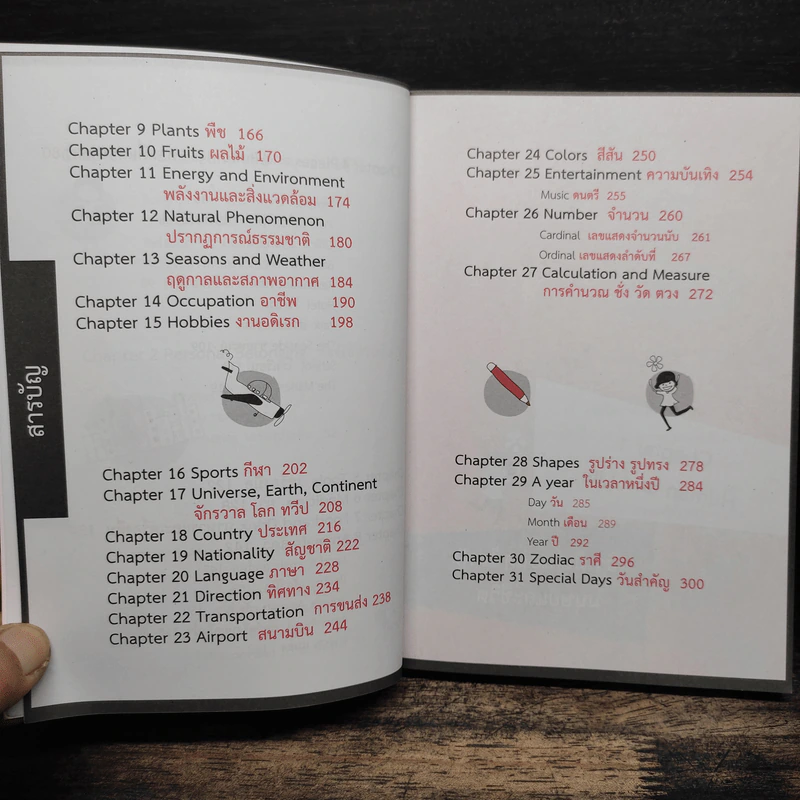 สารบัญ
Chapter 9 Plants พืช 166
Chapter 10 Fruits ผลไม้ 170
Chapter 11 Energy and Environment
พลังงานและสิ่งแวดล้อม 174
Chapter 12 Natural Phenomenon
ปรากฏการณ์ธรรมชาติ 180
Chapter 13 Seasons and Weather
ฤดูกาลและสภาพอากาศ 184
Chapter 14 Occupation อาชีพ 190
Chapter 15 Hobbies งานอดิเรก 198
Chapter 16 Sports กีฬา 202
Chapter 17 Universe, Earth, Continent
จักรวาล โลก ทวีป 208
Chapter 18 Country ประเทศ 216
Chapter 19 Nationality สัญชาติ 222
Chapter 20 Language ภาษา 228
Chapter 21 Direction ทิศทาง 234
Chapter 22 Transportation การขนส่ง 238
Chapter 23 Airport สนามบิน 244
Chapter 24 Colors สีสัน 250
Chapter 25 Entertainment ความบันเทิง 254
Music ดนตรี 255
Chapter 26 Number จำนวน 260
Cardinal เลขแสดงจำนวนนับ 261
Ordinal เลขแสดงลำดับที่ 267
Chapter 27 Calculation and Measure
การคำนวณ ชั่ง วัด ตวง 272
Chapter 28 Shapes รูปร่าง รูปทรง 278
Chapter 29 A year ในเวลาหนึ่งปี 284
Day วัน 285
Month เดือน 289
Year ปี 292
Chapter 30 Zodiac ราศี 296
Chapter 31 Special Days วันสำคัญ 300